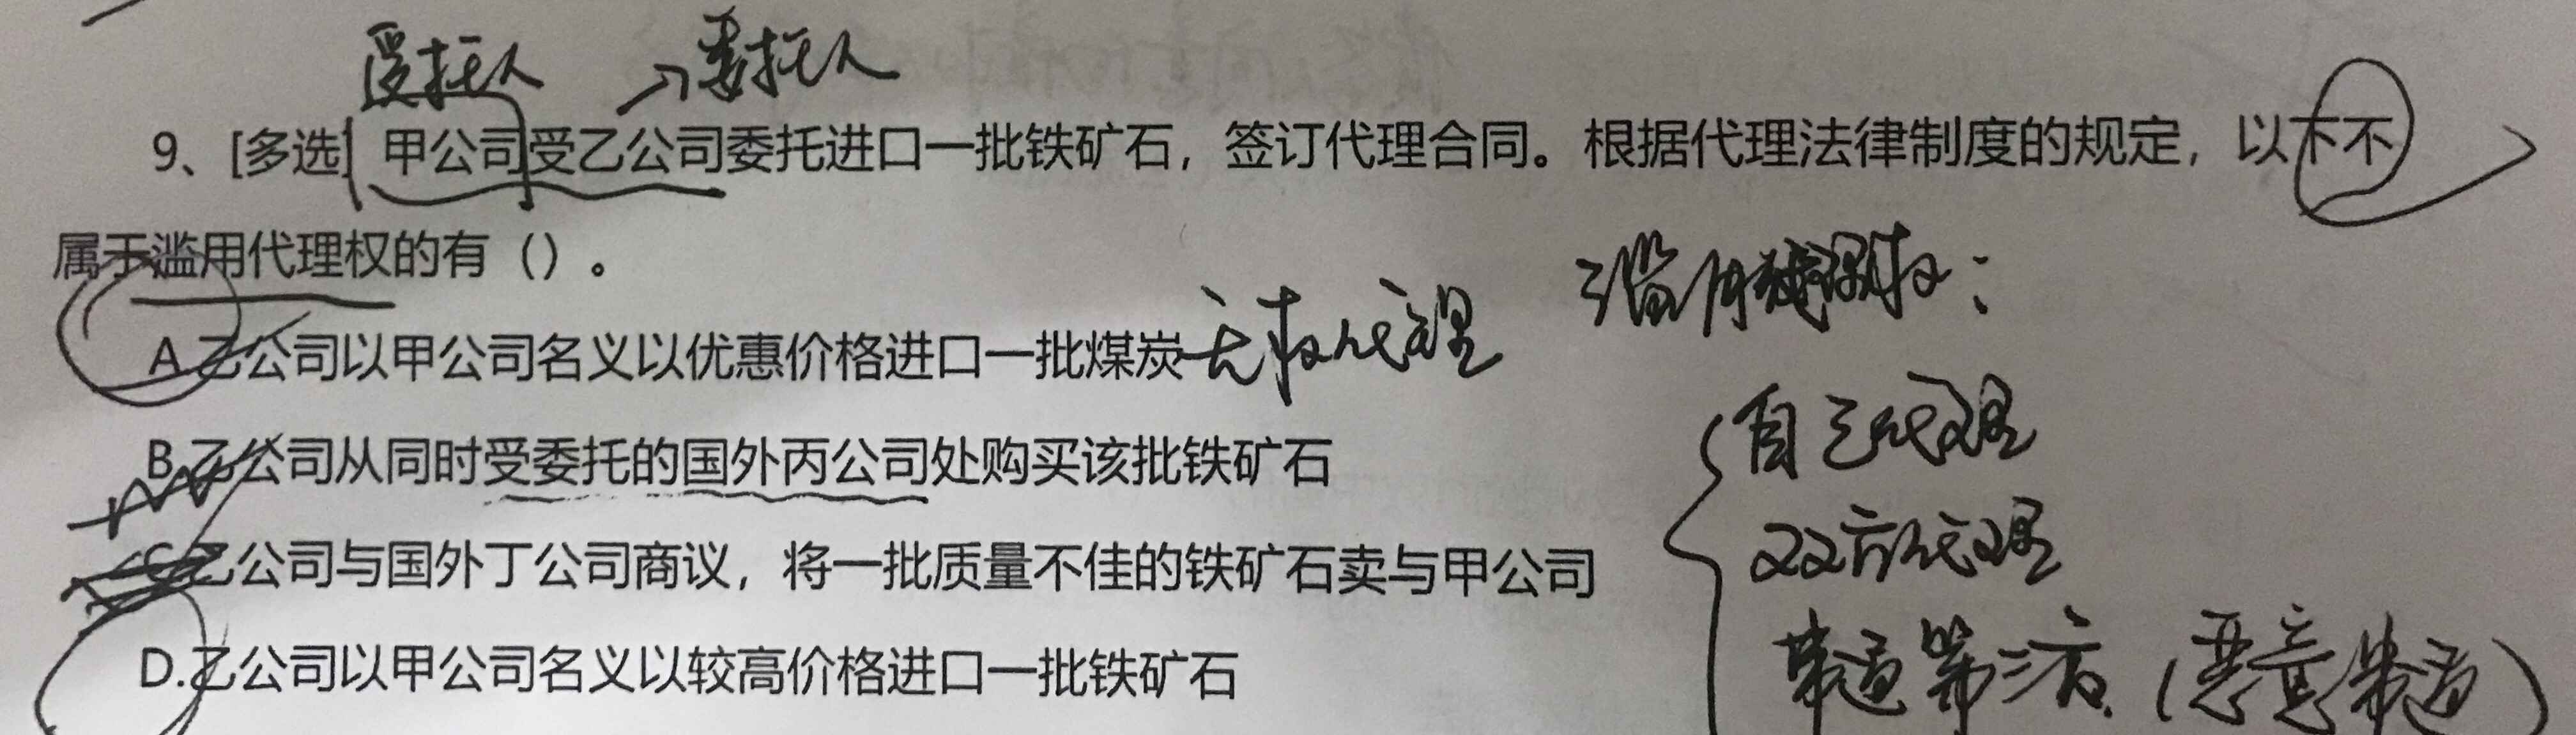 受托人 →委托人
9、[多选] 甲公司受乙公司委托进口一批铁矿石，签订代理合同。根据代理法律制度的规定，以下不
属于滥用代理权的有（）。
滥用代理权：
A.乙公司以甲公司名义以优惠价格进口一批煤炭 无权代理
自己代理
B.乙公司从同时受委托的国外丙公司处购买该批铁矿石
双方代理
C.乙公司与国外丁公司商议，将一批质量不佳的铁矿石卖与甲公司
D.乙公司以甲公司名义以较高价格进口一批铁矿石
串通第三方（恶意串通）